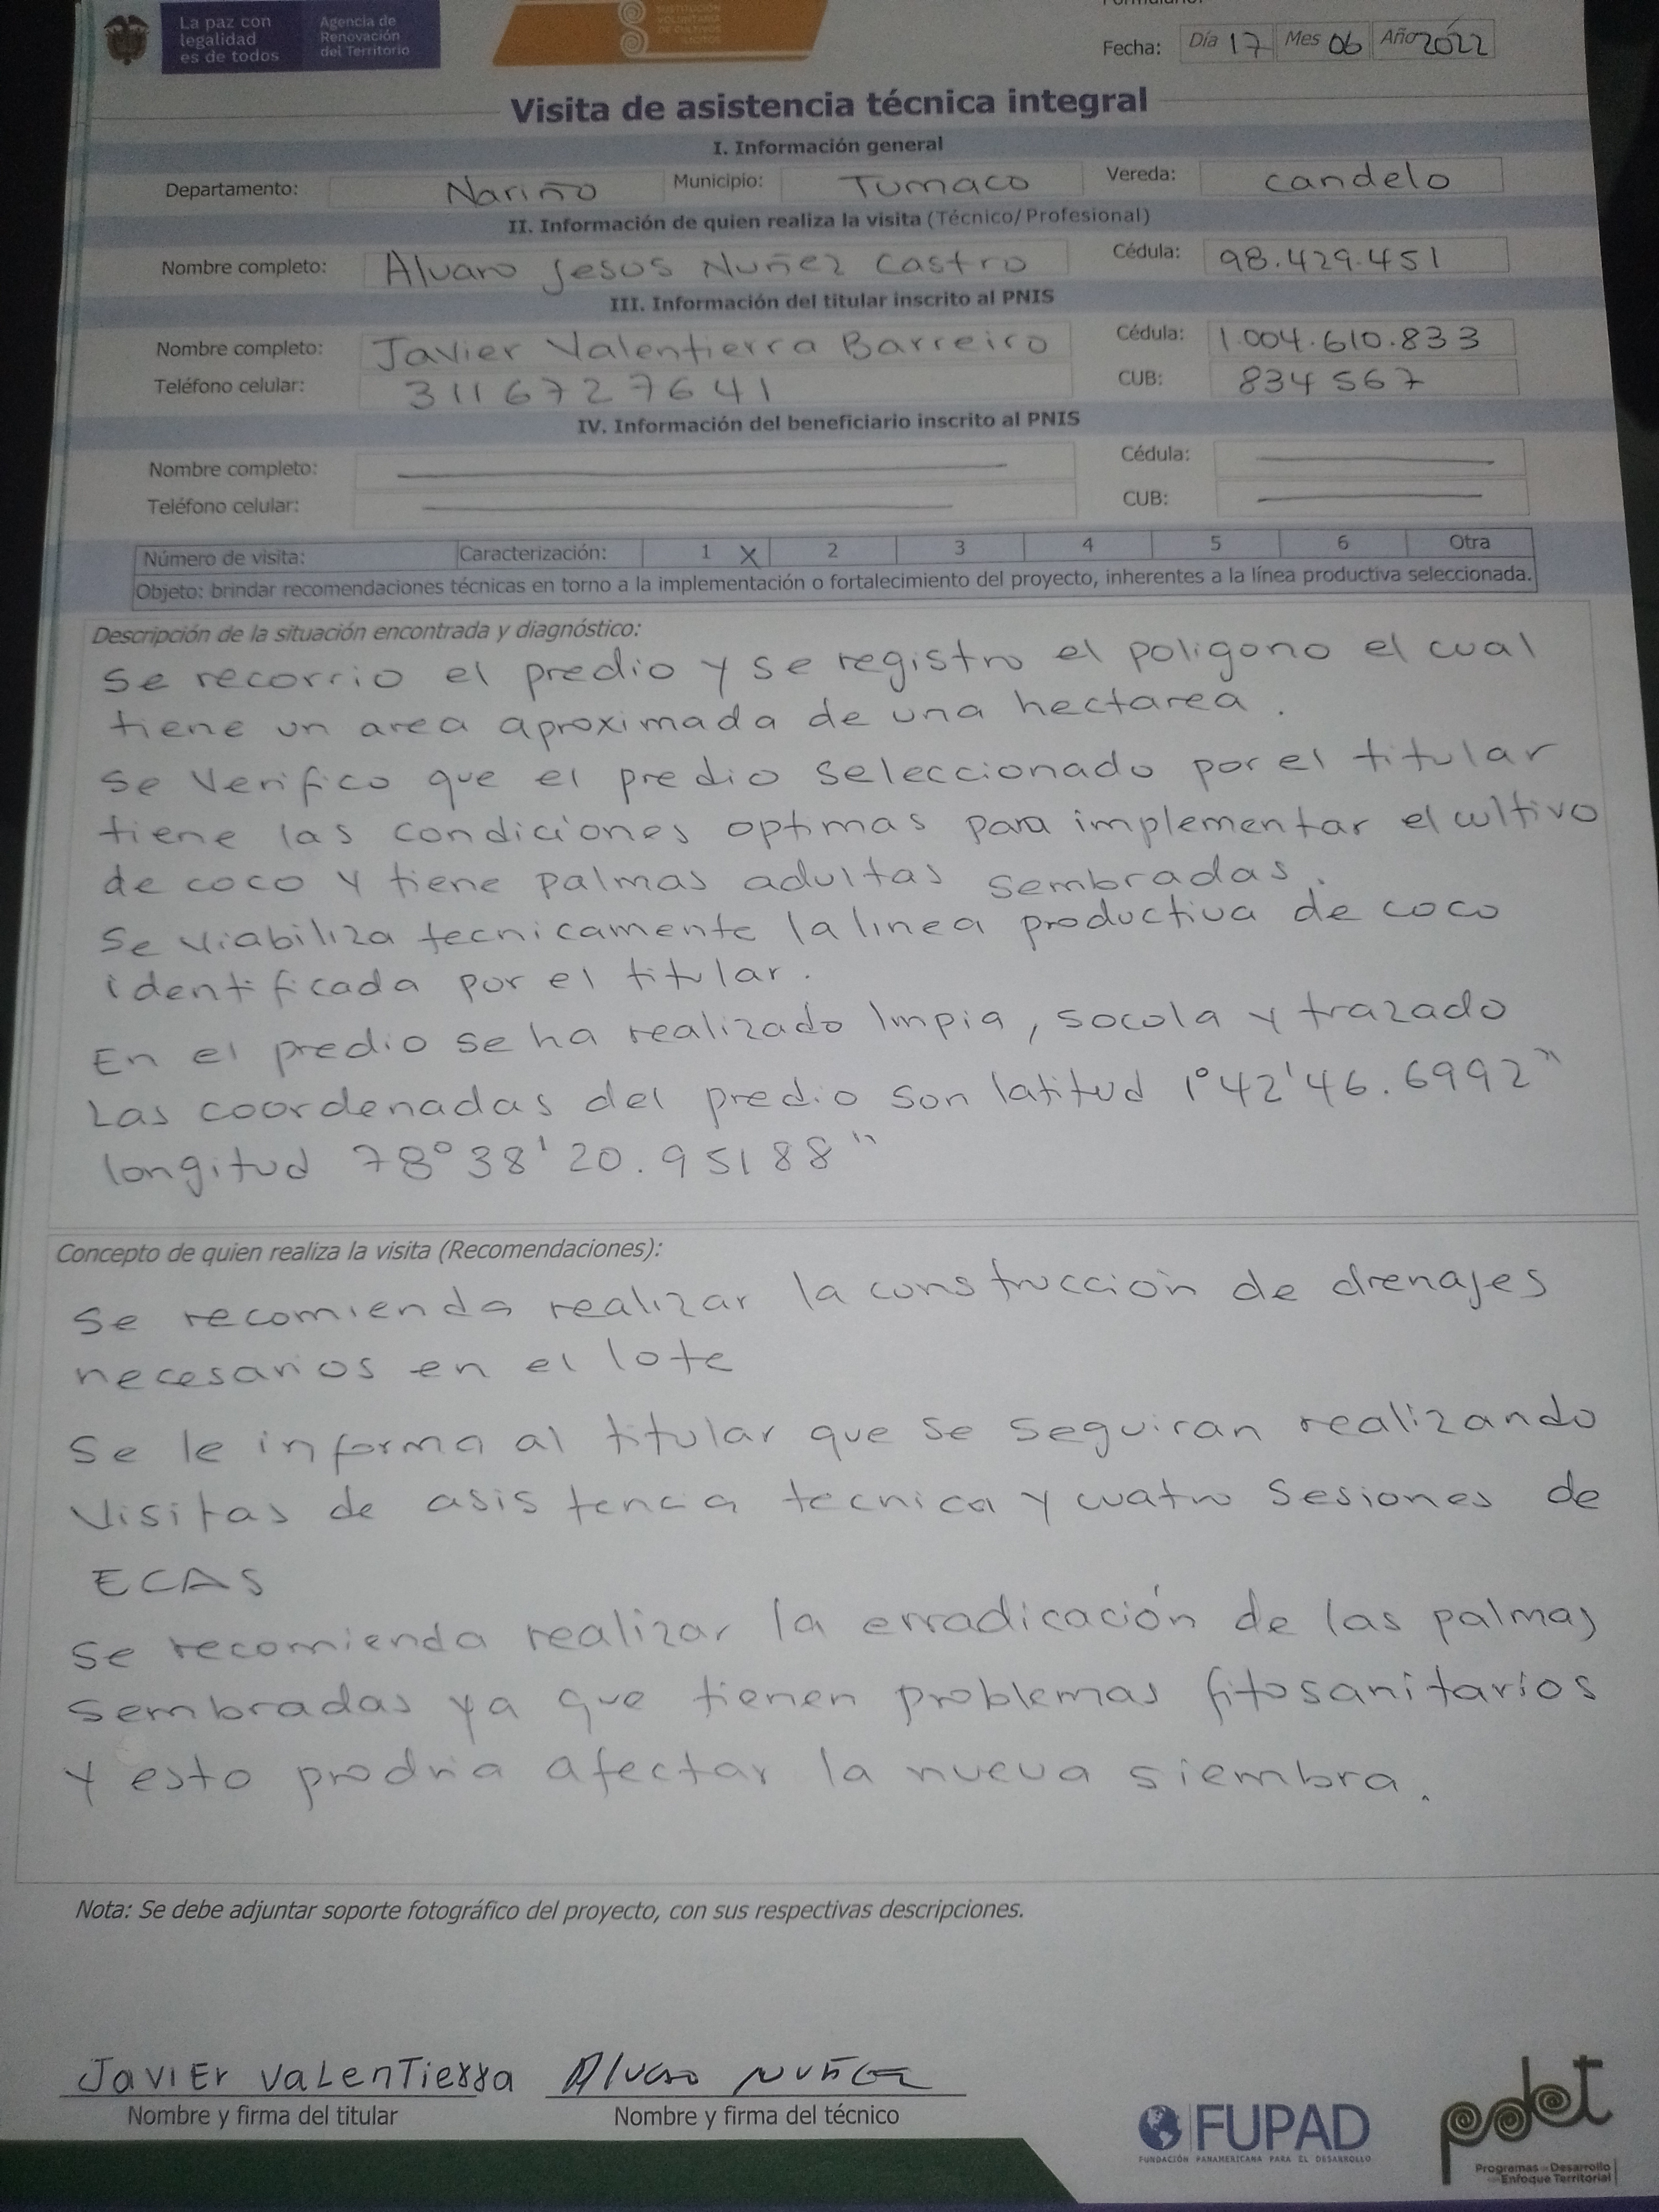 La paz con
legalidad
es de todos
Agencia de
Renovación
del Territorio
SUSTITUCIÓN
VOLUNTARIA
DE CULTIVOS
ILÍCITOS
Fecha: Día 17 Mes 06 Año 2022
Visita de asistencia técnica integral
I. Información general
Departamento: Nariño Municipio: Tumaco Vereda: candelo
II. Información de quien realiza la visita (Técnico/Profesional)
Nombre completo: Alvaro Jesus Nuñez Castro Cédula: 98.429.451
III. Información del titular inscrito al PNIS
Nombre completo: Javier Valentierra Barreiro Cédula: 1.004.610.833
Teléfono celular: 3116727641 CUB: 834567
IV. Información del beneficiario inscrito al PNIS
Nombre completo: Cédula:
Teléfono celular: CUB:
Número de visita: Caracterización: 1 X 2 3 4 5 6 Otra
Objeto: brindar recomendaciones técnicas en torno a la implementación o fortalecimiento del proyecto, inherentes a la línea productiva seleccionada.
Descripción de la situación encontrada y diagnóstico:
Se recorrio el predio y se registro el poligono el cual
tiene un area aproximada de una hectarea.
Se Verifico que el predio seleccionado por el titular
tiene las condiciones optimas para implementar el cultivo
de coco y tiene palmas adultas sembradas.
Se viabiliza tecnicamente la linea productiva de coco
identificada por el titular.
En el predio se ha realizado limpia, socola y trazado
Las coordenadas del predio son latitud 1°42'46.6992"
longitud 78°38'20.95188"
Concepto de quien realiza la visita (Recomendaciones):
Se recomienda realizar la construcción de drenajes
necesarios en el lote
Se le informa al titular que se seguiran realizando
Visitas de asistencia tecnica y cuatro sesiones de
ECAS
Se recomienda realizar la erradicación de las palmas
sembradas ya que tienen problemas fitosanitarios
y esto prodria afectar la nueva siembra.
Nota: Se debe adjuntar soporte fotográfico del proyecto, con sus respectivas descripciones.
JaviEr VaLenTierra Alvaro Nuñez
Nombre y firma del titular Nombre y firma del técnico
FUPAD
FUNDACIÓN PANAMERICANA PARA EL DESARROLLO
pdet
Programas de Desarrollo
con Enfoque Territorial